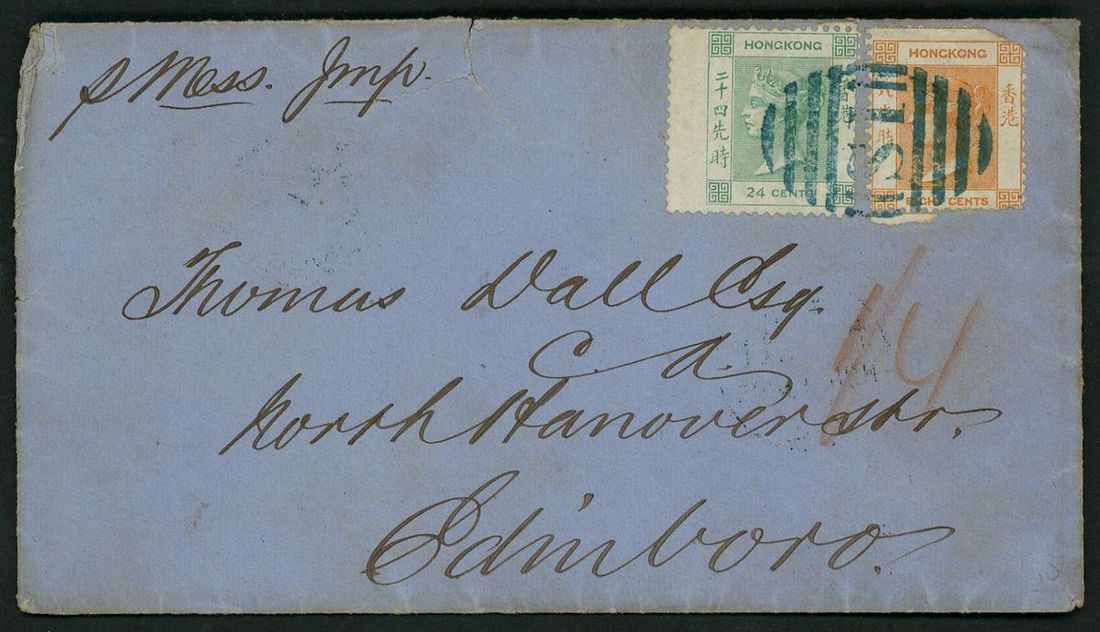 p Mess. Imp.
HONGKONG
二十四先時
香港
24 CENTS
HONGKONG
八先時
香港
EIGHT CENTS
S1
Thomas Dall Esq.
C. A.
North Hanover Str.
Edinboro.
1/4